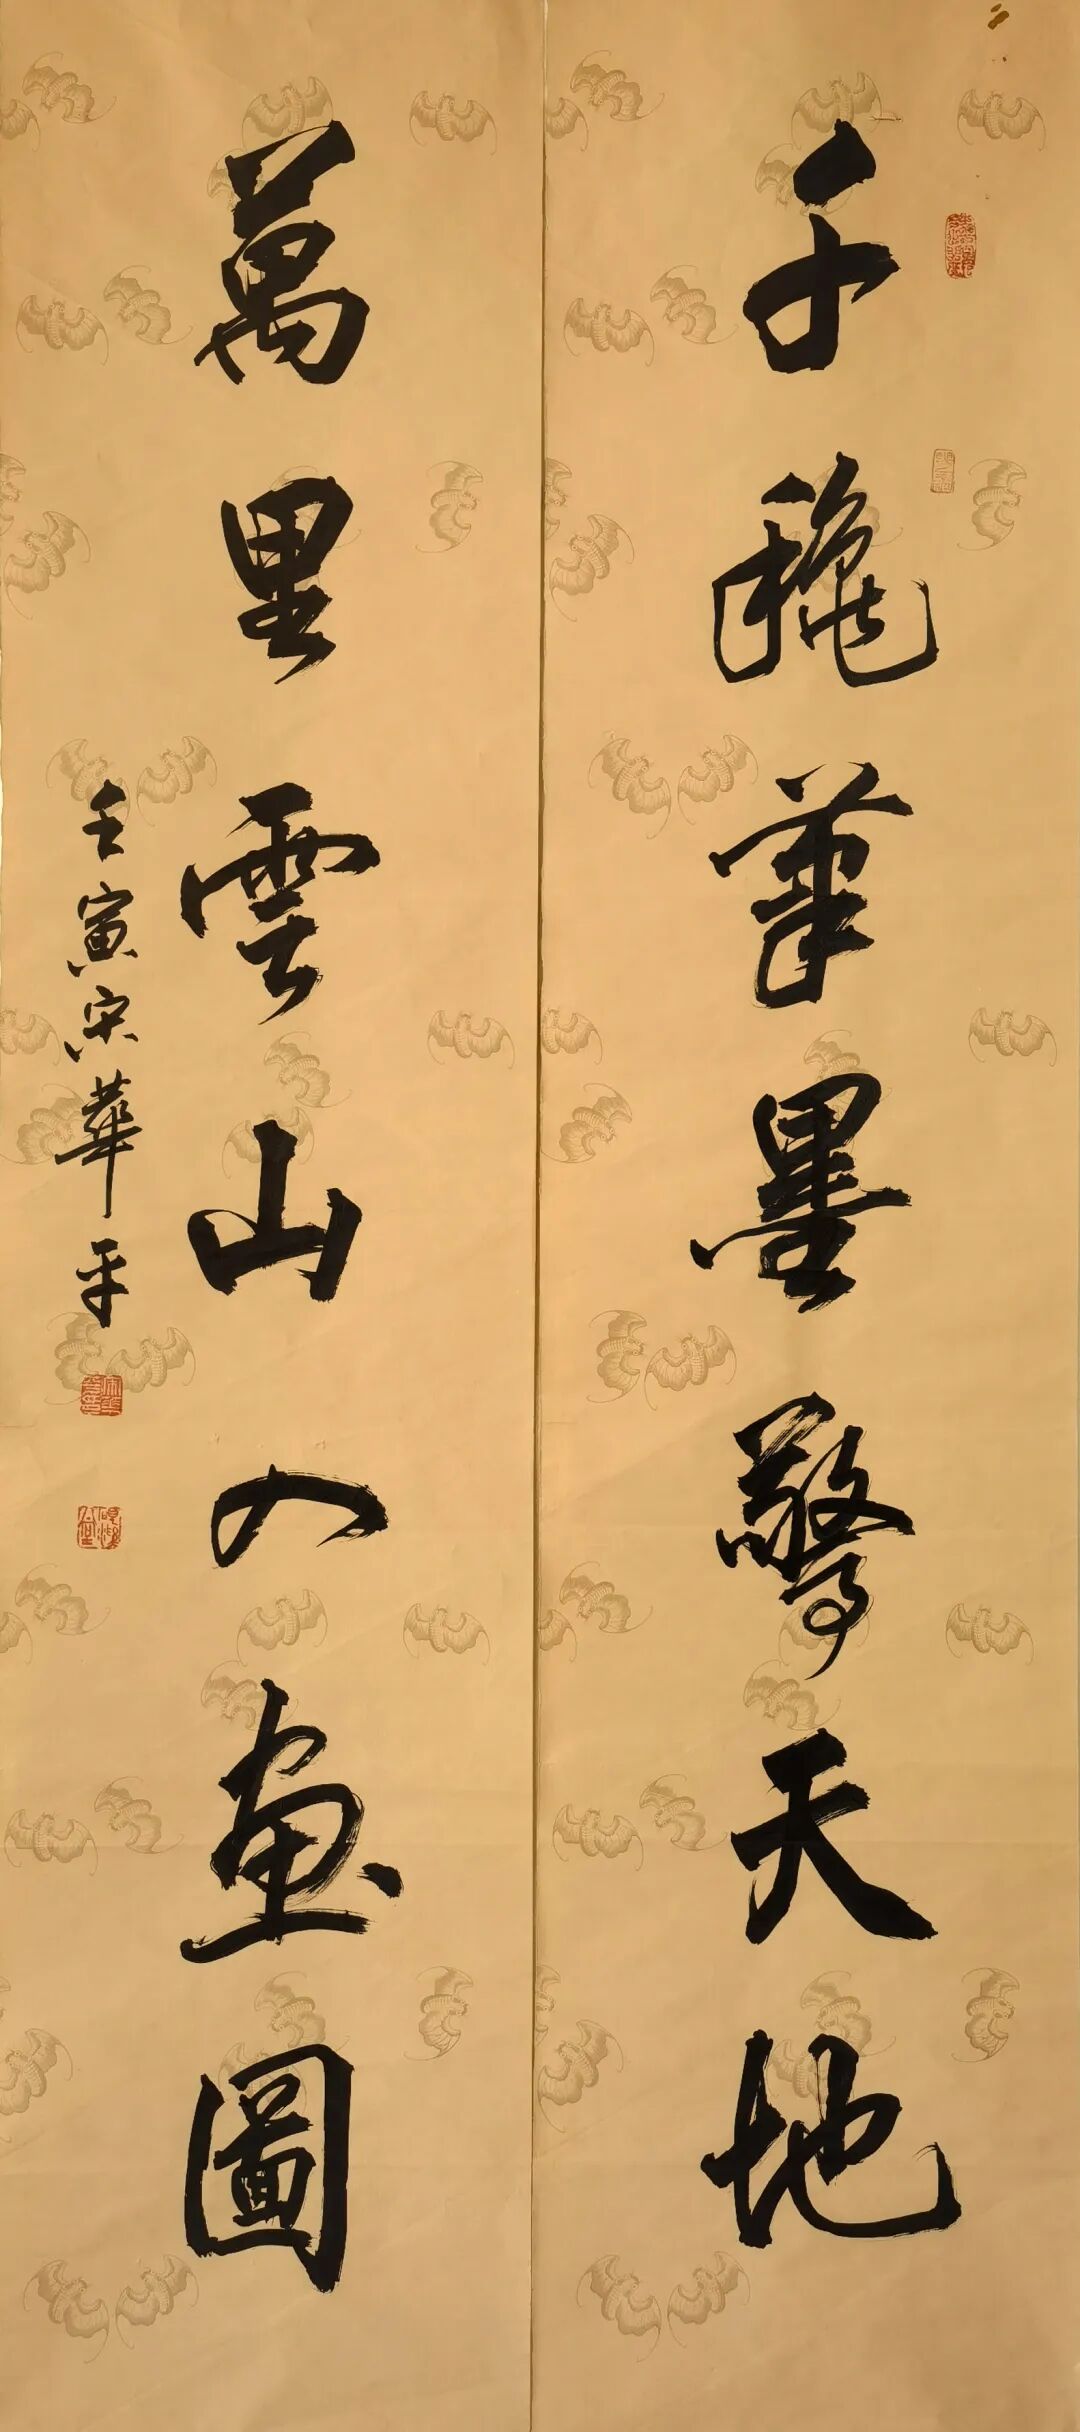 千穐筆墨驚天地
萬里雲山入畫圖
壬寅宋華平